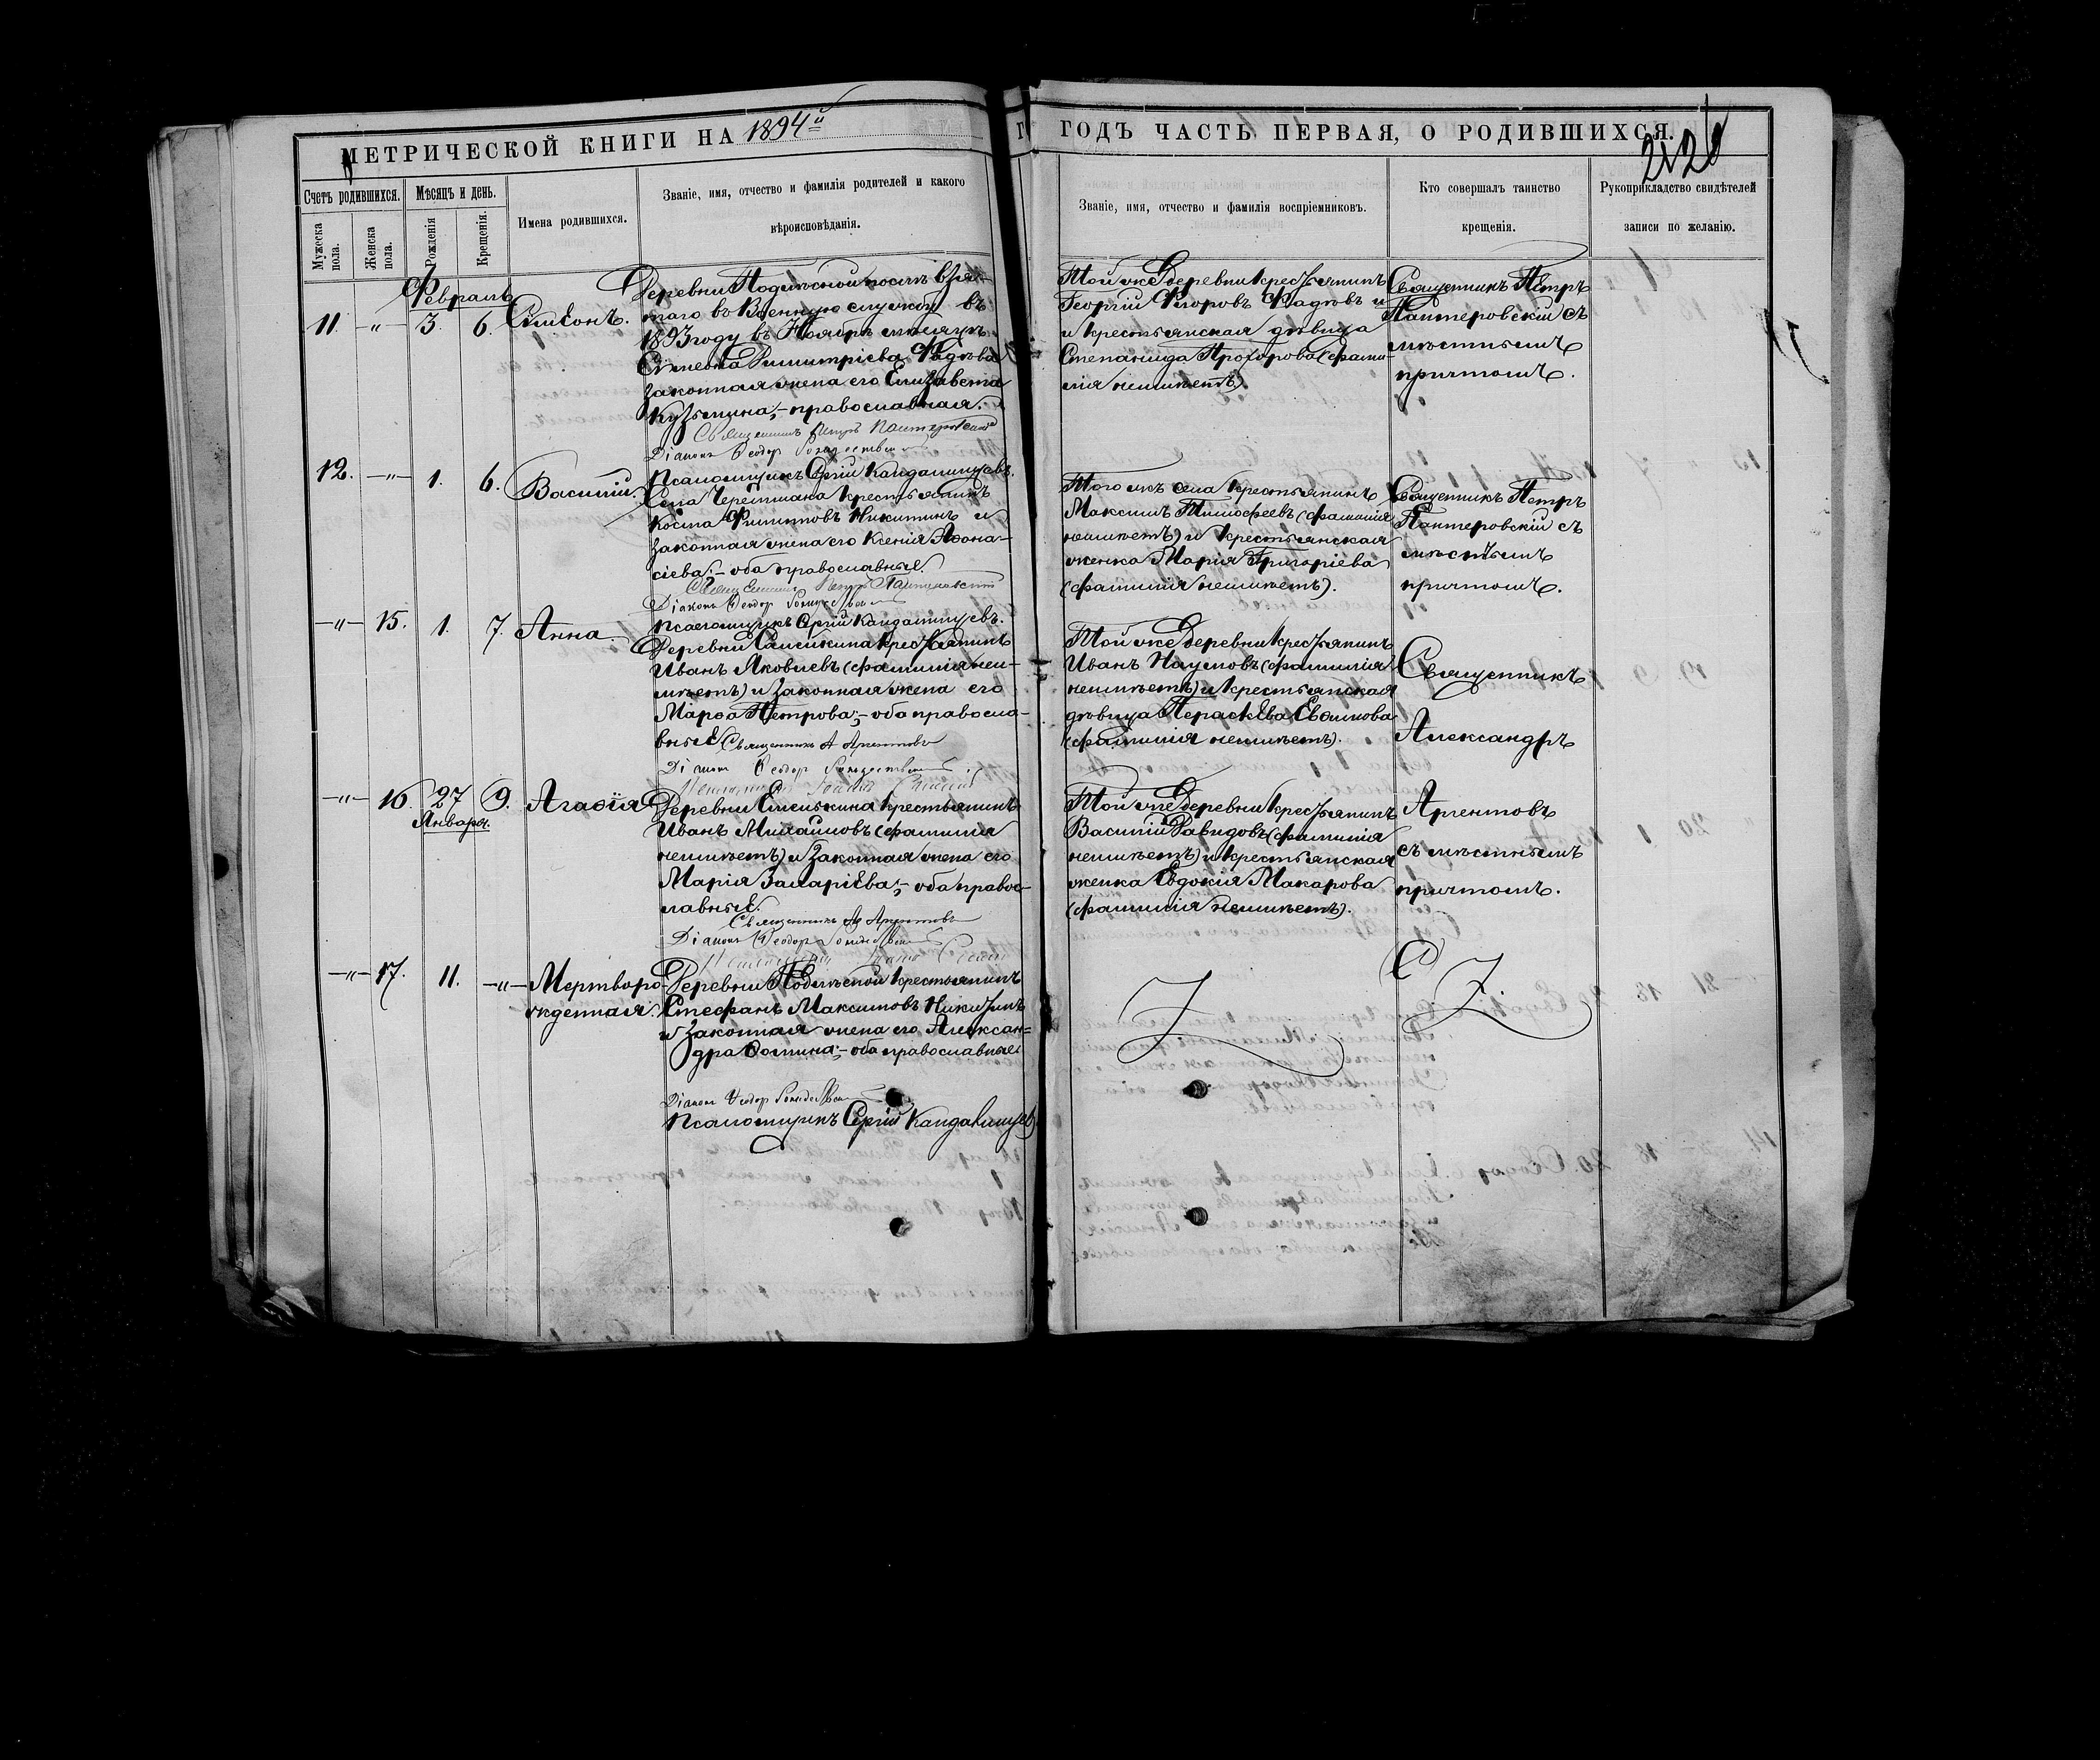 МЕТРИЧЕСКОЙ КНИГИ НА 1894й
ГОДЪ ЧАСТЬ ПЕРВАЯ, О РОДИВШИХСЯ.
Счетъ родившихся.
Мѣсяцъ и день.
Имена родившихся.
Званіе, имя, отчество и фамилія родителей и какого
вѣроисповѣданія.
Званіе, имя, отчество и фамилія воспріемниковъ.
Кто совершалъ таинство
крещенія.
Рукоприкладство свидѣтелей
записи по желанію.
Мужеска
пола.
Женска
пола.
Рожденія
Крещенія.
Февраль
11. -"- 3. 6. Симеонъ.
Деревни Подлѣсной послѣ взя-
таго въ Военную службу въ
1893 году въ Ноябрѣ мѣсяцѣ
Димитріева Фадѣева
законная жена его Елизавета
Кузьмина,- православная.
Священникъ Петръ Пантеровскій
Діаконъ Ѳеодор Рождественскій
Псаломщикъ Сергій Кандалинцевъ.
Той же деревни крестьянинъ
Георгій Фадѣевъ и
и крестьянская дѣвица
Степанида Прохорова (фами-
лія неимѣетъ)
Священникъ Петръ
Пантеровскій съ
мѣстнымъ
причтомъ.
12. -"- 1. 6. Василій.
Села Черемшана крестьянинъ
Косма Филипповъ Никитинъ и
законная жена его Ксенія Аѳона-
сіева;- оба православные.
Священникъ Петръ Пантеровскій
Діаконъ Ѳеодор Рождественскій
Псаломщикъ Сергій Кандалинцевъ.
Того жъ села крестьянинъ
Максимъ Тимофеевъ (фамилія
неимѣетъ) и крестьянская
женка Марія Григоріева
(фамилія неимѣетъ).
Священникъ Петръ
Пантеровскій съ
мѣстнымъ
причтомъ.
-"- 15. 1. 7. Анна.
Деревни крестьянинъ
Иванъ Яковлевъ (фамилія неи-
мѣетъ) и законная жена его
Марѳа Петрова;- оба правосла-
вные. Священникъ А Аргентовъ
Діаконъ Ѳеодор Рождественскій
Той же деревни крестьянинъ
Иванъ Наумовъ (фамилія
неимѣетъ) и крестьянская
дѣвица Параскева Евѳимова
(фамилія неимѣетъ).
Священникъ
Александръ
-"- 16. 27 9. Агаѳія
Января.
Деревни Емелькина крестьянинъ
Иванъ Михайловъ (фамилія
неимѣетъ) и законная жена его
Марія;- оба правос-
лавные.
Священникъ А Аргентовъ
Діаконъ Ѳеодор Рождественскій
Той же деревни крестьянинъ
Василій Давидовъ (фамилія
неимѣетъ) и крестьянская
женка Евдокія Макарова
(фамилія неимѣетъ).
Аргентовъ
съ мѣстнымъ
причтомъ.
-"- 17. 11. -"- Мертворо-
жденная.
Деревни Подлѣсной крестьянинъ
Стефанъ Максимовъ Никитинъ
и законная жена его Алексан-
дра Фомина;- оба православные
Діаконъ Ѳеодор Рождественскій
Псаломщикъ Сергій Кандалинцевъ